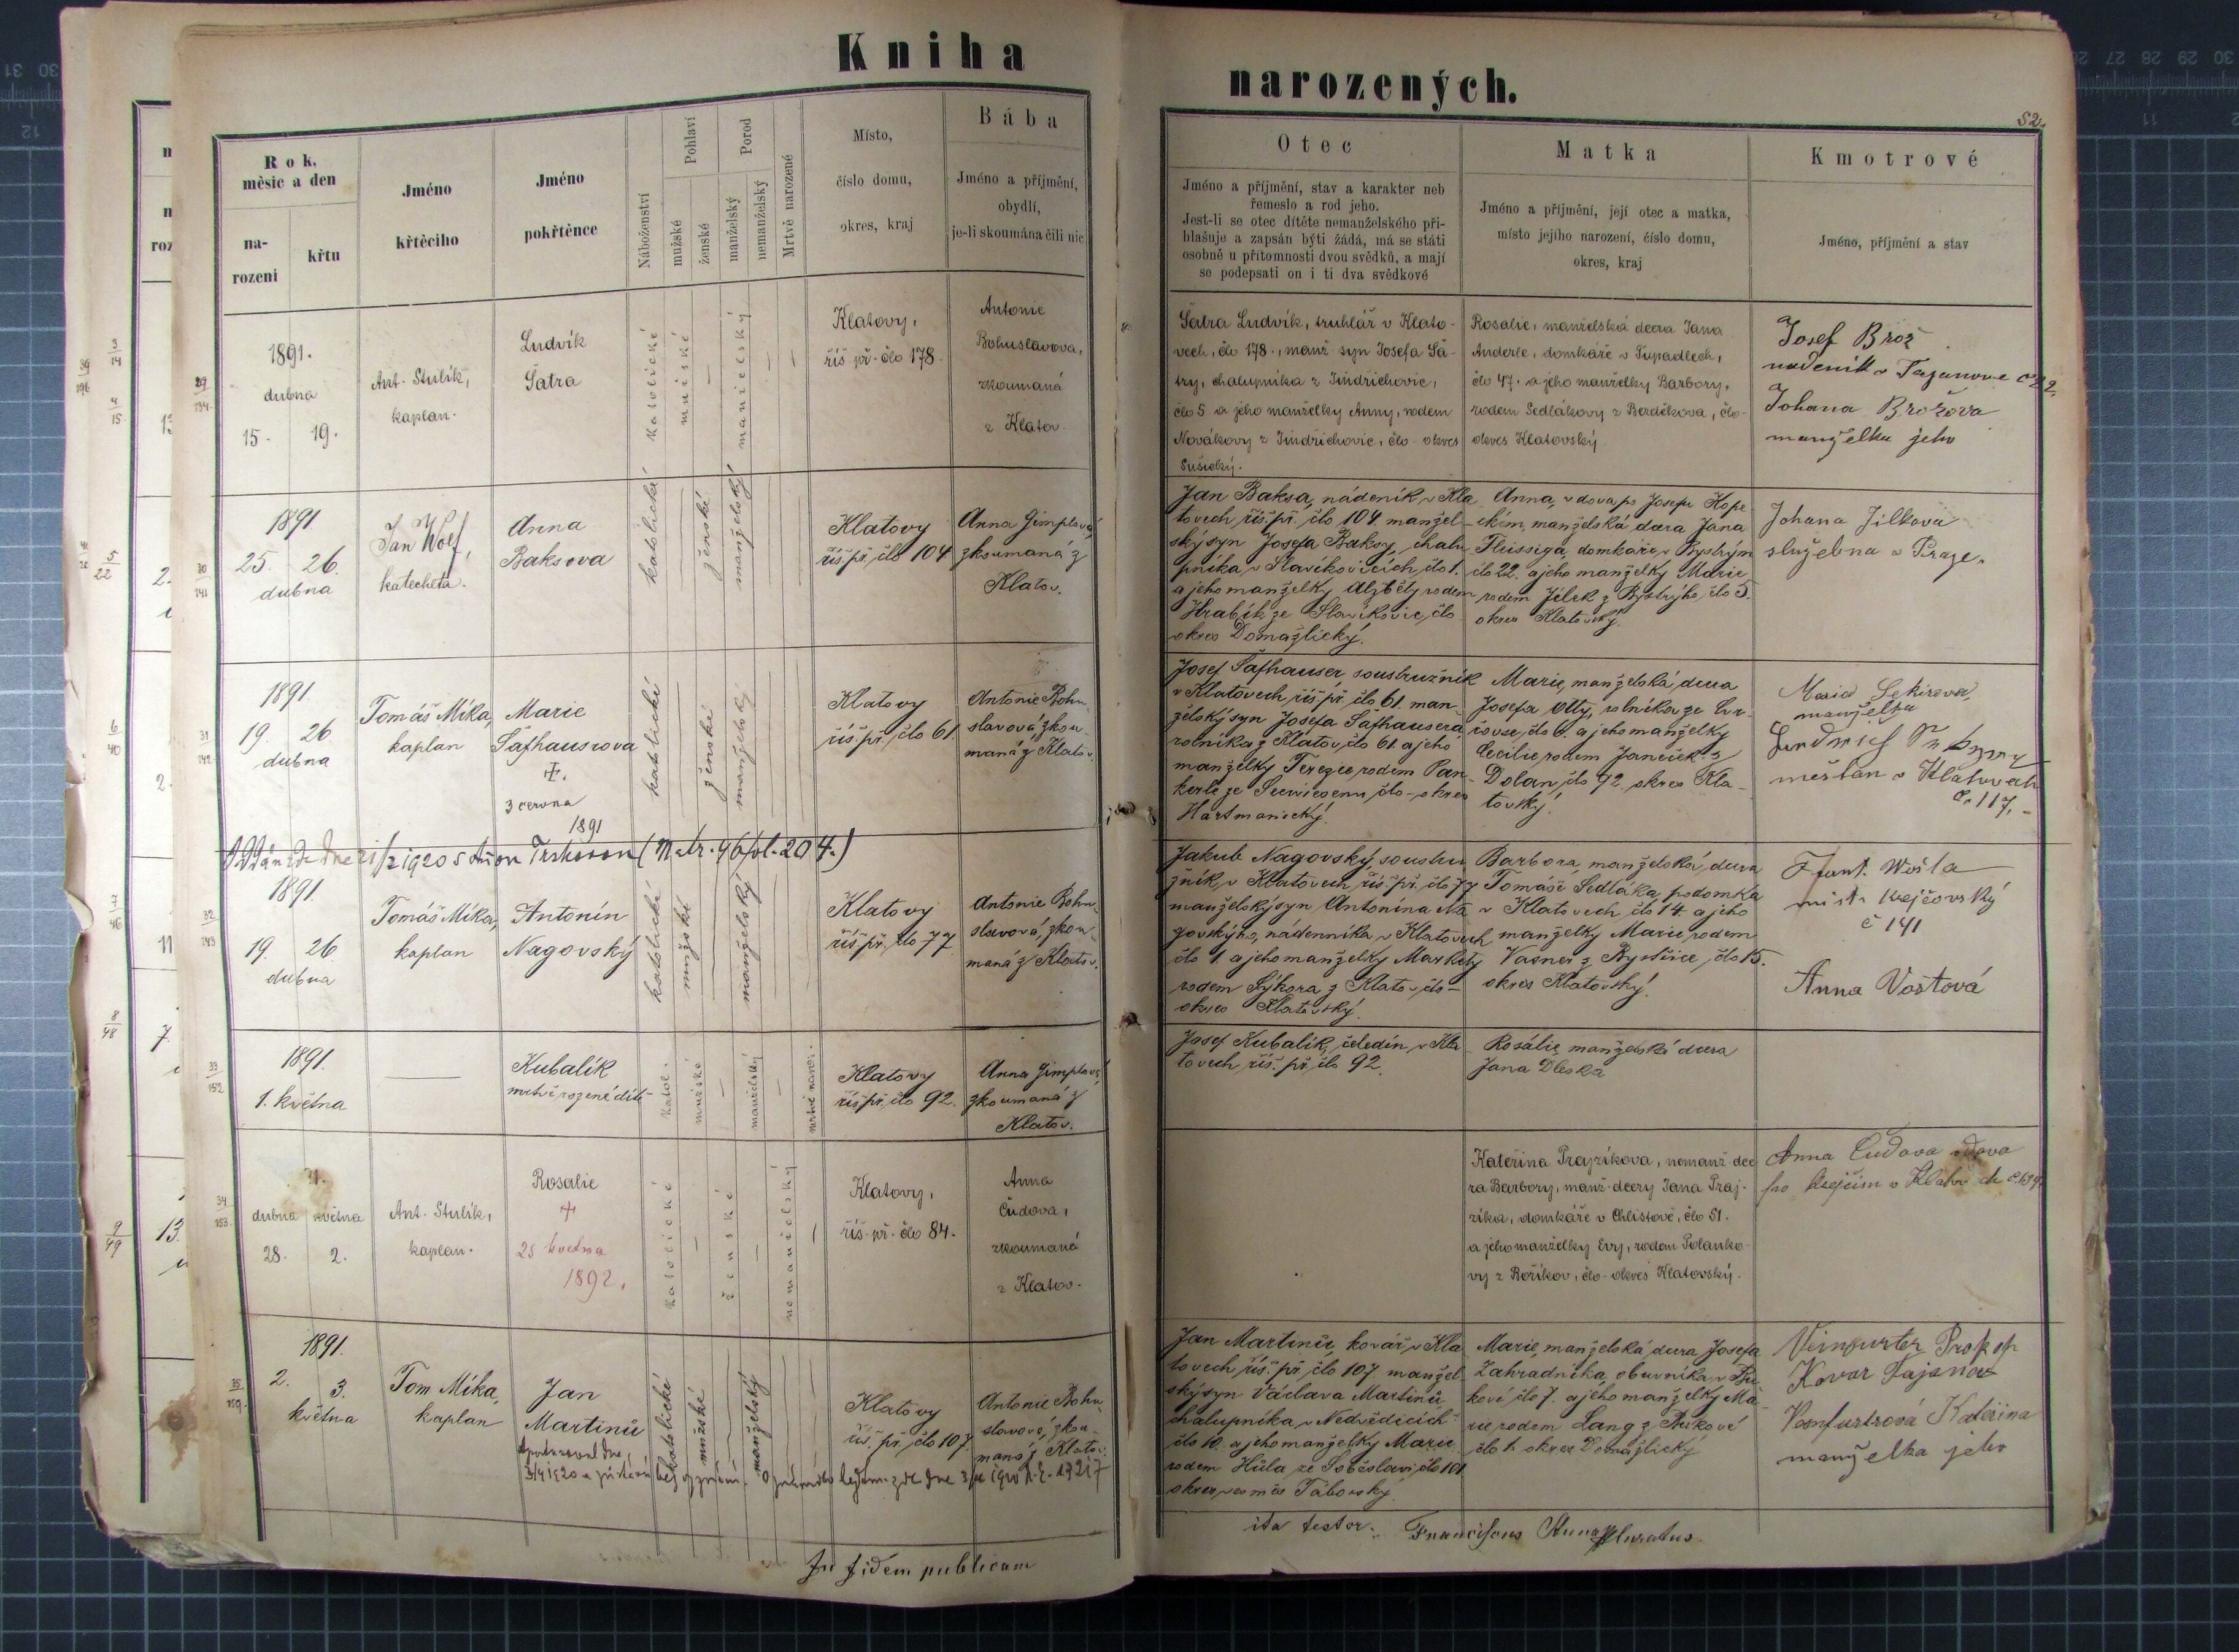 Kniha
narozených.
52.
Rok, měsíc a den
narození
křtu
Jméno křtěcího
Jméno pokřtěnce
Náboženství
Pohlaví
mužské
ženské
Porod
manželský
nemanželský
Mrtvě narozené
Místo,
číslo domu,
okres, kraj
Bába
Jméno a příjmění,
obydlí,
je-li skoumána čili nic
Otec
Jméno a příjmění, stav a karakter neb
řemeslo a rod jeho.
Jest-li se otec dítěte nemanželského při-
hlašuje a zapsán býti žádá, má se státi
osobně u přítomnosti dvou svědků, a mají
se podepsati on i ti dva svědkové
Matka
Jméno a příjmění, její otec a matka,
místo jejího narození, číslo domu,
okres, kraj
Kmotrové
Jméno, příjmění a stav
1891.
dubna
15. 19.
Ant. Stulík,
kaplan.
Ludvík
Šatra
katolické
mužské
manželský
Klatovy,
říš. př. člo 178.
Antonie
Bohuslavova,
zkoumaná
z Klatov.
Šatra Ludvík, truhlář v Klato-
vech, člo 178., manž. syn Josefa Ša-
try, chalupníka z Jindřichovic,
člo 5 a jeho manželky Anny, rodem
Novákovy z Jindřichovic, člo - okres
Sušický.
Rosalie, manželská dcera Jana
Anderle, domkáře v Tupadlech,
člo 47. a jeho manželky Barbory,
rodem Sedlákovy z Bezděkova, člo-
okres Klatovský.
Josef Brož
nadeník v Tajanove
Johana Brožova
manželka jeho
1891
25. 26.
dubna
Jan Wolf,
katecheta.
Anna
Baksova
katolické
ženské
manželský
Klatovy
říš. př. člo 104
Anna Gimplová,
zkoumaná z
Klatov.
Jan Baksa, nádeník v Kla
tovech říš. př. člo 104. manžel-
ský syn Josefa Baksy, chalu
pníka v Slavíkovicích člo 1.
a jeho manželky Alžběty rodem
Hrabík ze Slavíkovic, člo
okres Domažlický.
Anna, vdova po Josefu Kope
ckém, manželská dcera Jana
Fleissiga, domkáře v Bystrým
člo 22. a jeho manželky Marie
rodem Jílek z Bystrýho, člo 5.
okres Klatovský.
Johana Jilkova
služebna v Praze.
1891.
19. 26
dubna
Tomáš Míka,
kaplan
Marie
Šafhausrova
3 cervna
1891
katolické
ženské
manželský
Klatovy
říš. př. člo 61.
Antonie Bohu
slavová, zkou-
maná z Klatov.
Josef Šafhauser, soustružník
v Klatovech, říš. př. člo 61. man-
želský syn Josefa Šafhausera
rolníka z Klatov, člo 61. a jeho
manželky Terezie, rodem Pan-
kerle ze Seewiesenu, člo - okres
Hartmanický.
Marie, manželská dcera
Josefa Otty, rolníka ze
čovse, člo 6. a jeho manželky
Cecilie, rodem Janeček z
Dolan, člo 92. okres Kla-
tovský.
Maria
manželka
meštan v Klatovech
č. 117.
1891.
19. 26
dubna
Tomáš Míka,
kaplan
Antonín
Nagovský
katolické
mužské
manželský
Klatovy
říš. př. člo 77
Antonie Bohu-
slavová, zkou-
maná z Klatov.
Jakub Nagovský, soustru
žník, v Klatovech, říš. př. člo 77
manželský syn Antonína Na
govskýho, nádenníka v Klatovech
člo 1. a jeho manželky Markety
rodem Sýkora z Klatov, člo -
okres Klatovský.
Barbora, manželská dcera
Tomáše Sedláka, podomka
v Klatovech, člo 14. a jeho
manželky Marie, rodem
Vasner z Bystřice, člo 15.
okres Klatovský.
Frant. Wošta
mistr krejčovský
č 141
Anna Voštová
1891.
1. května
Kubalík
mrtvě rozené dítě
katol.
mužské
manželský
mrtvě naroz.
Klatovy
říš. př. člo 92.
Anna Gimplová,
zkoumaná z
Klatov.
Josef Kubalík, čeledín, v Kla
tovech, říš. př. člo 92.
Rosálie, manželská dcera
Jana Dleska
91.
dubna května
28. 2.
Ant. Stulík,
kaplan.
Rosalie
25 května
1892.
katolické
ženské
nemanželský
Klatovy,
říš. př. člo 84.
Anna
Čudova,
zkoumaná
z Klatov.
Kateřina Prajzíkova, nemanž. dce
ra Barbory, manž. dcery Jana Praj-
zíka, domkáře v Chlistově, člo 51.
a jeho manželky Evy, rodem Polanko-
vy z Bořikov, člo - okres Klatovský.
Anna Čudova vdova
po krejčim v Klatovech
1891.
2. 3.
května
Tom. Míka,
kaplan
Jan
Martinů
katolické
mužské
manželský
Klatovy
říš. př. člo 107.
Antonie Bohu
slavová, zkou-
maná z Klatov.
Jan Martinů, kovář, v Kla
tovech, říš. př. člo 107. manžel
ský syn Václava Martinů,
chalupníka v Nedvědicích
člo 10. a jeho manželky Marie
rodem Hůla ze Soběslavi, člo 101
okres Táborský.
Marie, manželská dcera Josefa
Zahradníka, obuvníka, v
kové, člo 7. a jeho manželky Ma-
rie rodem Lang z
člo 1. okres Domažlický
Veinfurter Prokop
Kovar Tajanov
Kateřina
manželka jeho
In fidem publicam
ita testor.